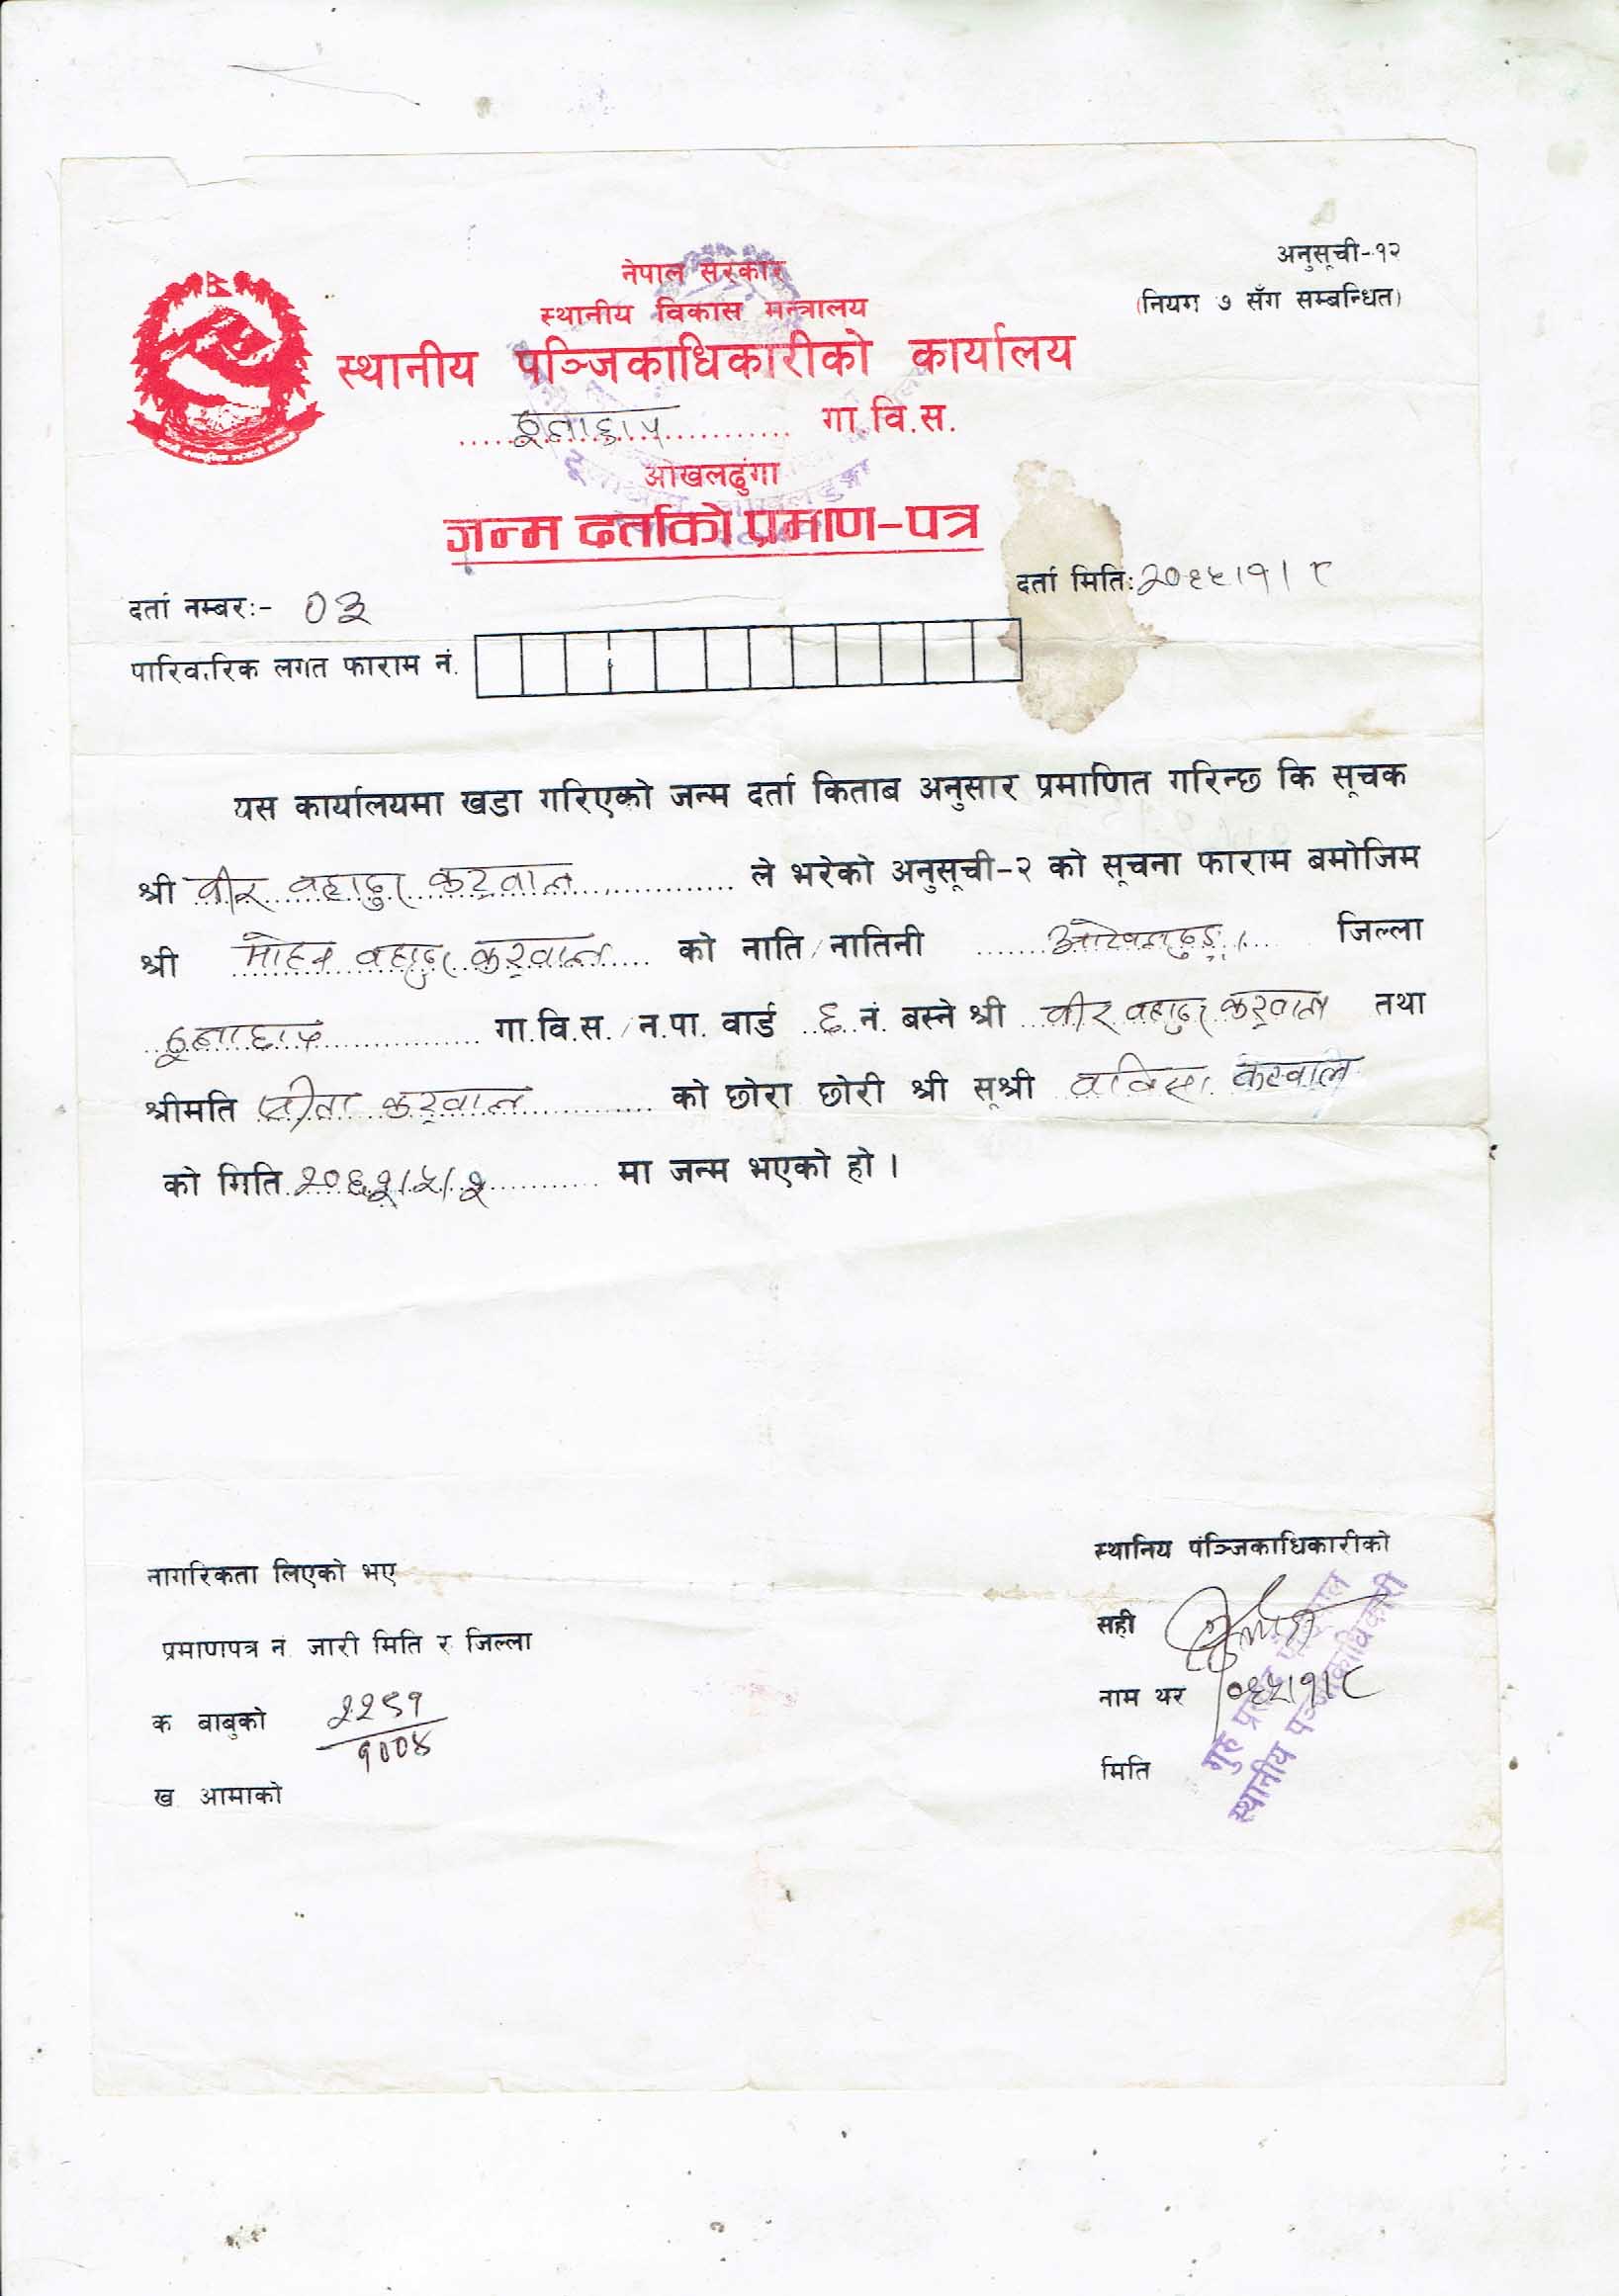 अनुसूची-१२
(नियम ७ सँग सम्बन्धित)
नेपाल सरकार
स्थानीय विकास मन्त्रालय
स्थानीय पञ्जिकाधिकारीको कार्यालय
गा.वि.स.
ओखलढुंगा
जन्म दर्ताको प्रमाण-पत्र
दर्ता मितिः २०६५।१।८
दर्ता नम्बरः- ०३
पारिवारिक लगत फाराम नं.
यस कार्यालयमा खडा गरिएको जन्म दर्ता किताब अनुसार प्रमाणित गरिन्छ कि सूचक
श्री वीर वहादुर कटवाल ले भरेको अनुसूची-२ को सूचना फाराम बमोजिम
श्री मोहन वहादुर कटवाल को नाति/नातिनी जिल्ला
गा.वि.स./न.पा. वार्ड ६ नं. बस्ने श्री वीर वहादुर कटवाल तथा
श्रीमति कटवाल को छोरा छोरी श्री सूश्री कटवाल
को मिति मा जन्म भएको हो ।
नागरिकता लिएको भए
प्रमाणपत्र नं जारी मिति र जिल्ला
क बाबुको
ख आमाको
स्थानिय पंञ्जिकाधिकारीको
सही
नाम थर ०६५।१।८
मिति
गुरु प्रसाद
स्थानीय पञ्जिकाधिकारी